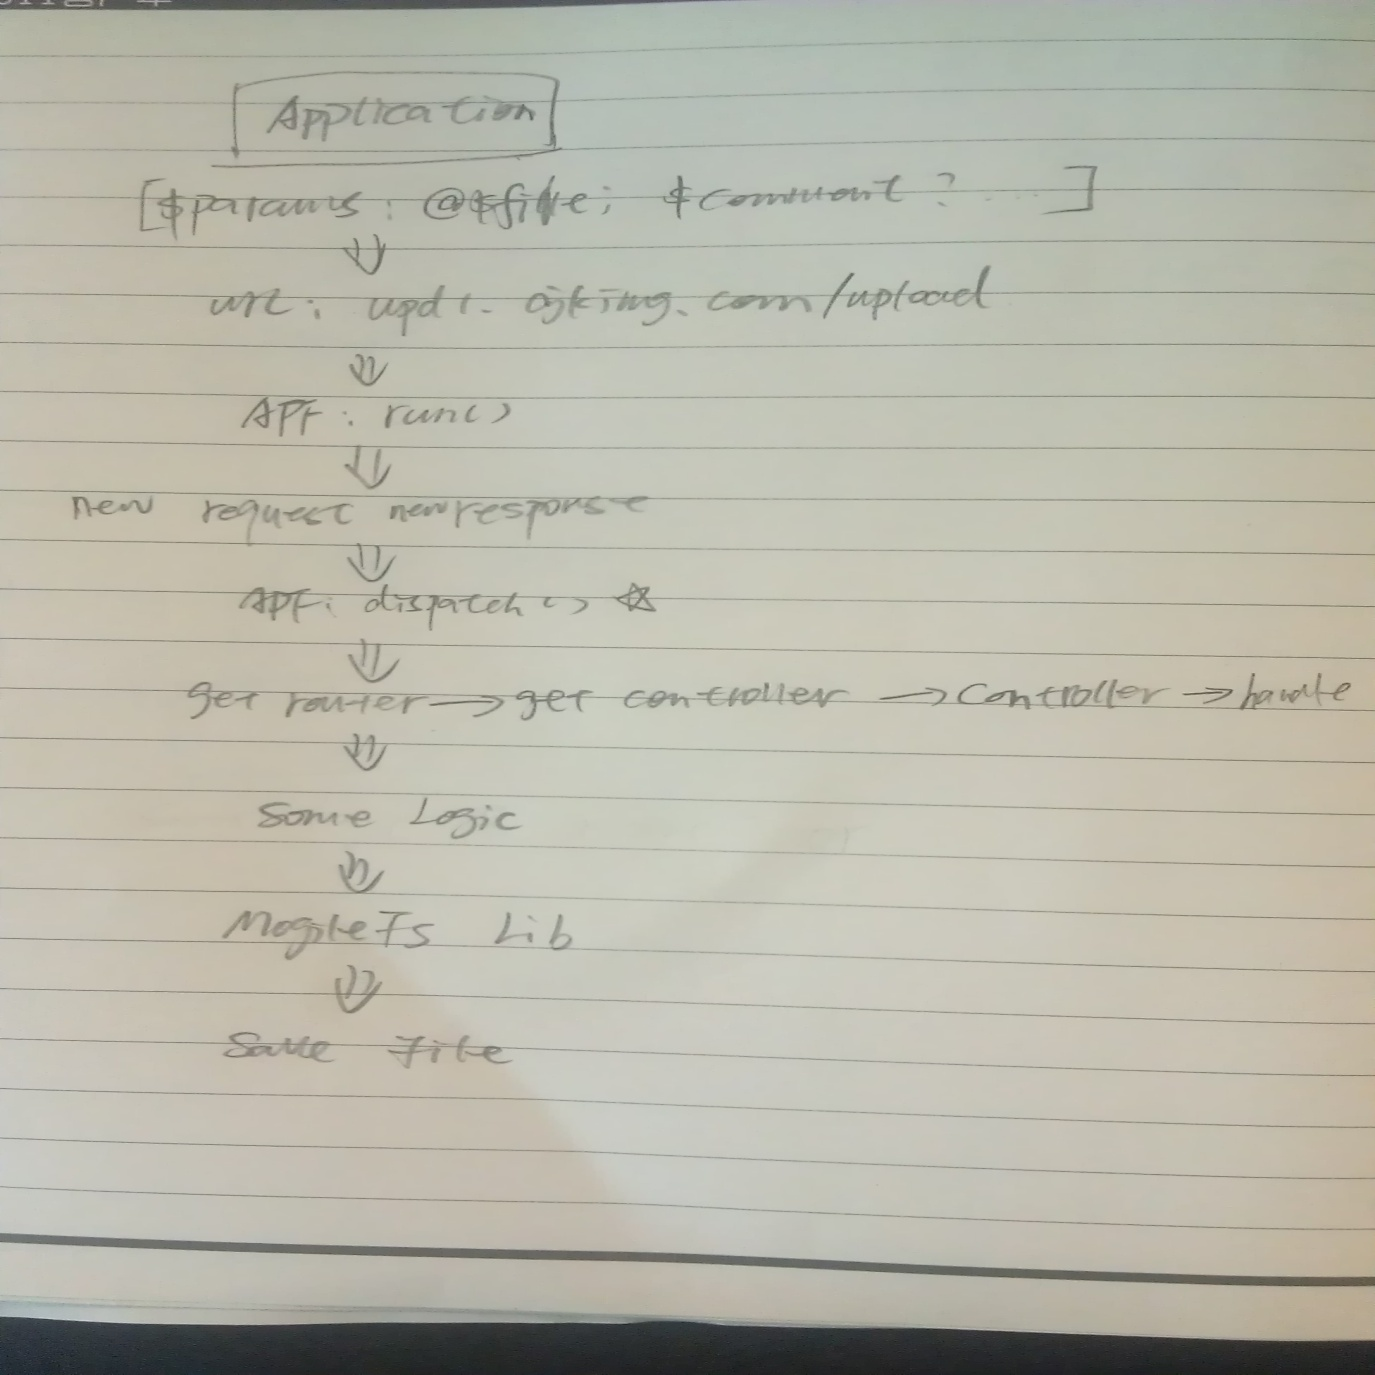 Application
[$params : @$file; $comment ? ... ]
url: upd1. ajking. com/upload
APF : run()
new request new response
APF: dispatch () ☆
get router → get controller → Controller → handle
Some Logic
MogileFs Lib
Save File